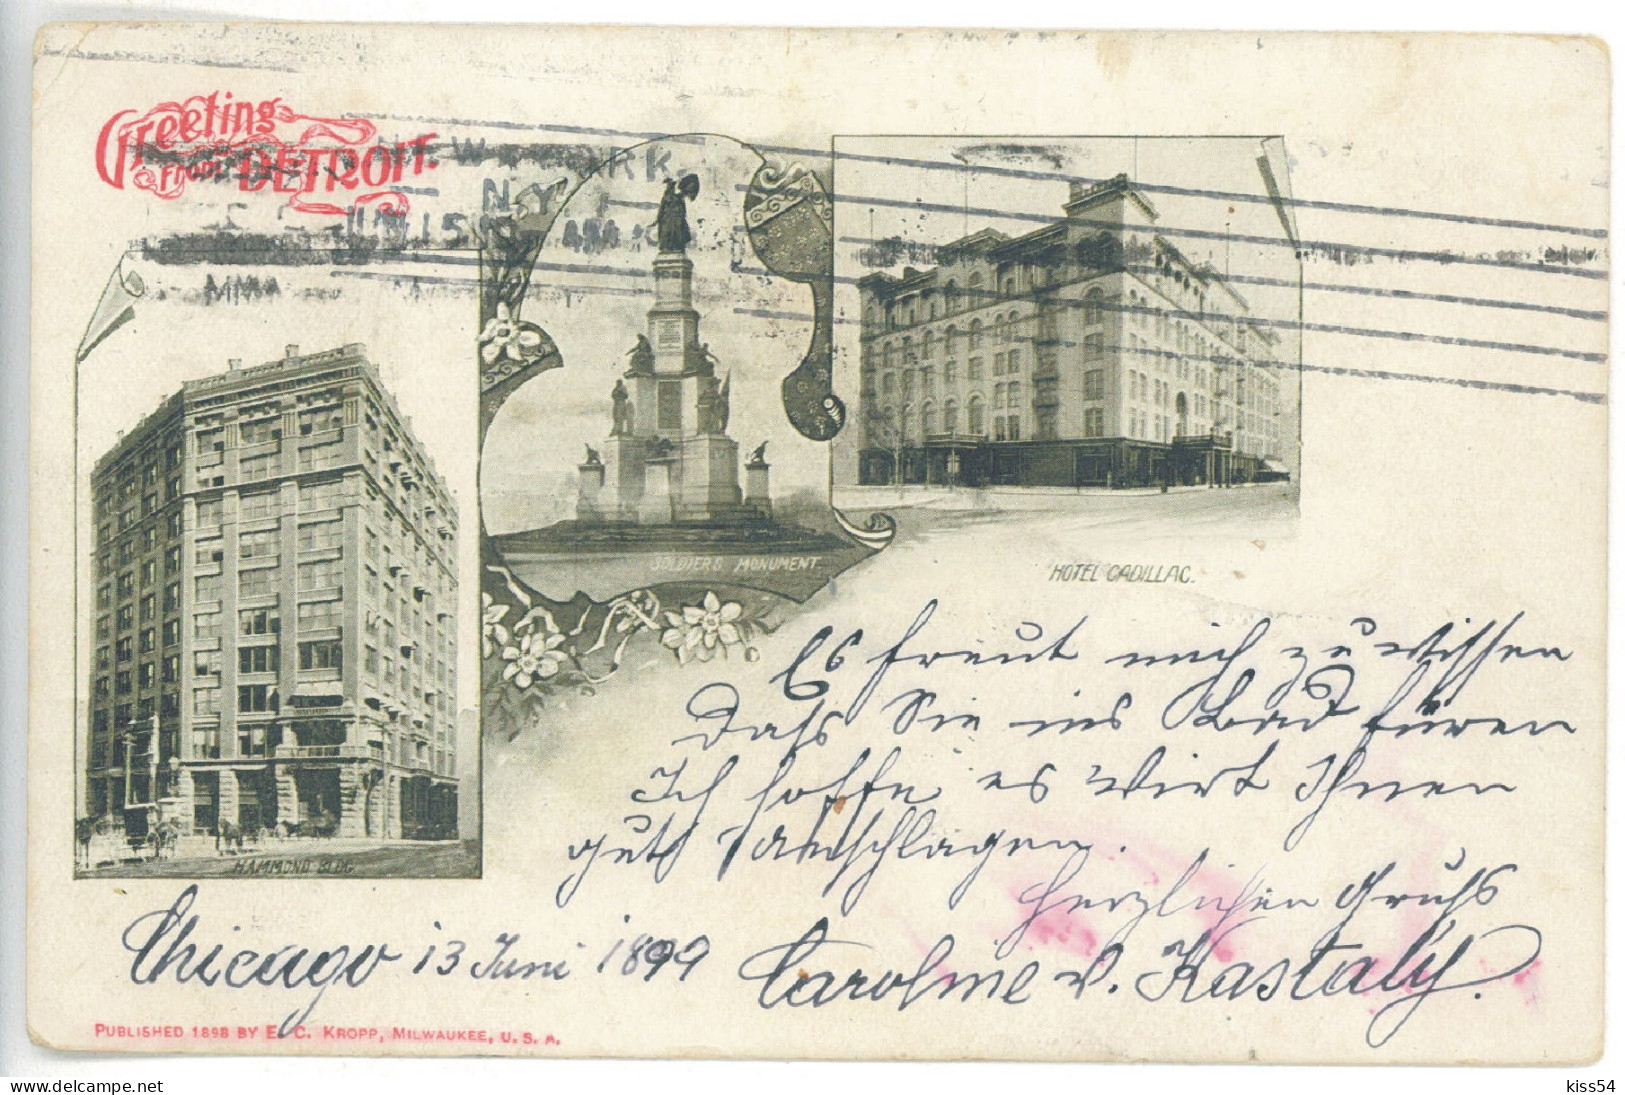 Greeting
from DETROIT.
NEW YORK
N.Y.
JUN 15
SOLDIERS MONUMENT
HOTEL CADILLAC.
HAMMOND BLDG.
Es freut mich zu wissen
Dass Sie ins Bad füren
Ich hoffe es wirt Ihnen
gut anschlagen.
Herzlichen Gruss
Chicago 13 Juni 1899
Caroline v. Kastaly.
PUBLISHED 1898 BY E. C. KROPP, MILWAUKEE, U. S. A.
www.delcampe.net
kiss54